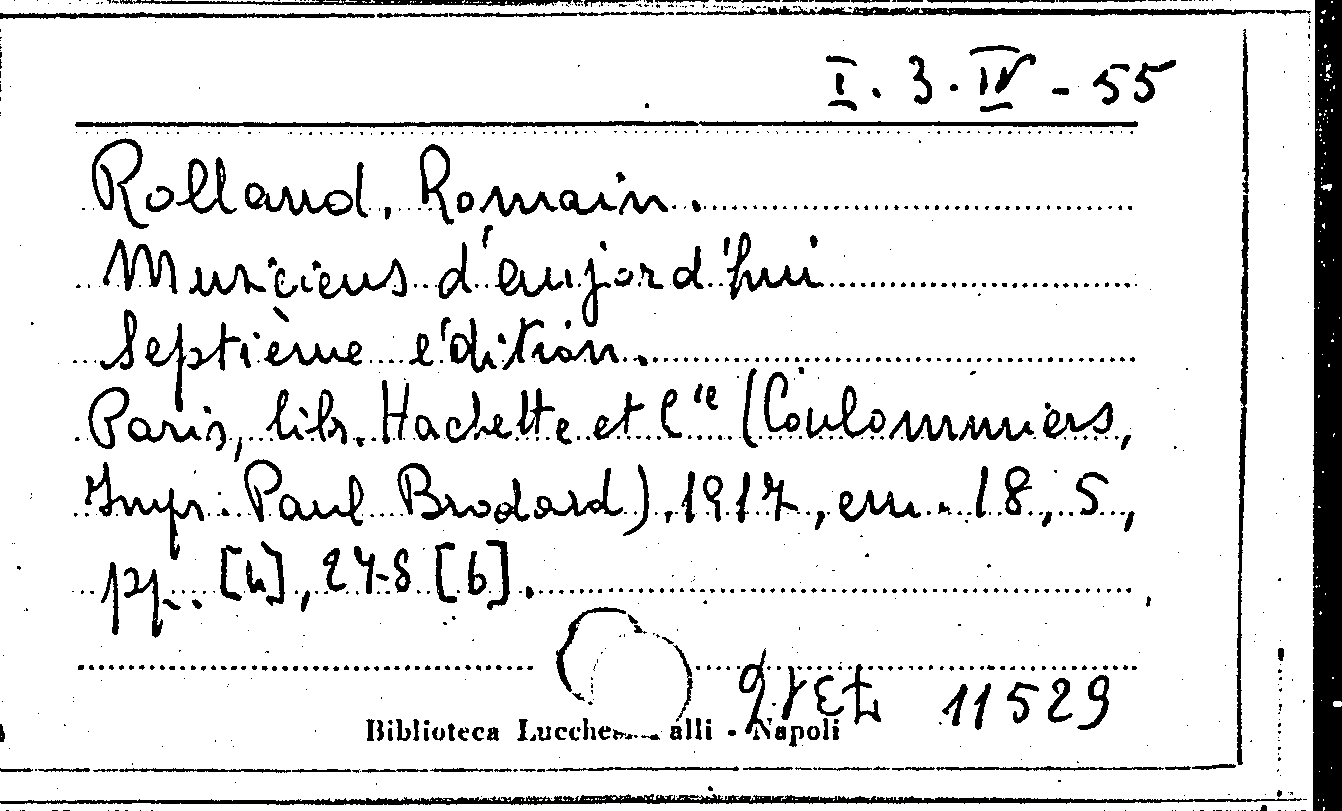 I. 3. IV - 55
Rolland, Romain.
Musiciens d'aujord'hui
Septième édition.
Paris, libr. Hachette et Cie (Coulommiers,
Impr. Paul Brodard), 1917, cm. 18,5,
pp. [4], 278 [6].
11529
Biblioteca Lucchesi alli - Napoli